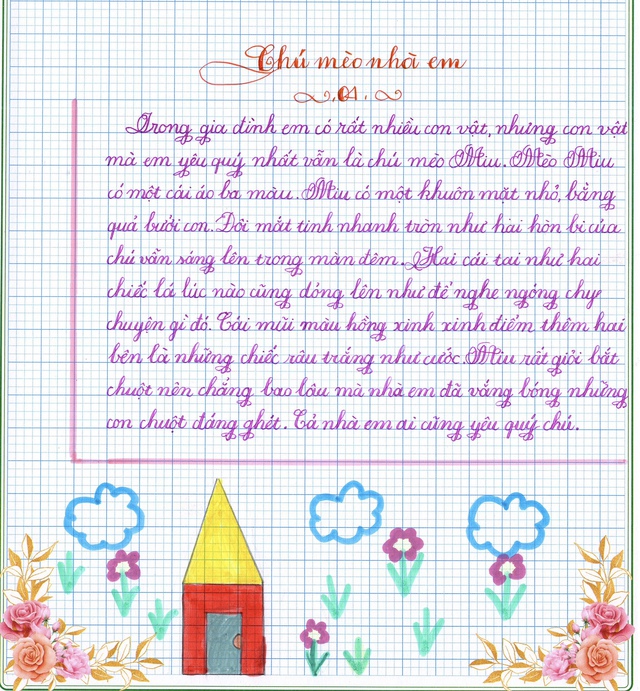 Chú mèo nhà em
01
Trong gia đình em có rất nhiều con vật, nhưng con vật
mà em yêu quý nhất vẫn là chú mèo Miu. Mèo Miu
có một cái áo ba màu. Miu có một khuôn mặt nhỏ, bằng
quả bưởi con. Đôi mắt tinh nhanh tròn như hai hòn bi của
chú vẫn sáng lên trong màn đêm. Hai cái tai như hai
chiếc lá lúc nào cũng dỏng lên như để nghe ngóng chuy
chuyện gì đó. Cái mũi màu hồng xinh xinh điểm thêm hai
bên là những chiếc râu trắng như cước. Miu rất giỏi bắt
chuột nên chẳng bao lâu mà nhà em đã vắng bóng những
con chuột đáng ghét. Cả nhà em ai cũng yêu quý chú.